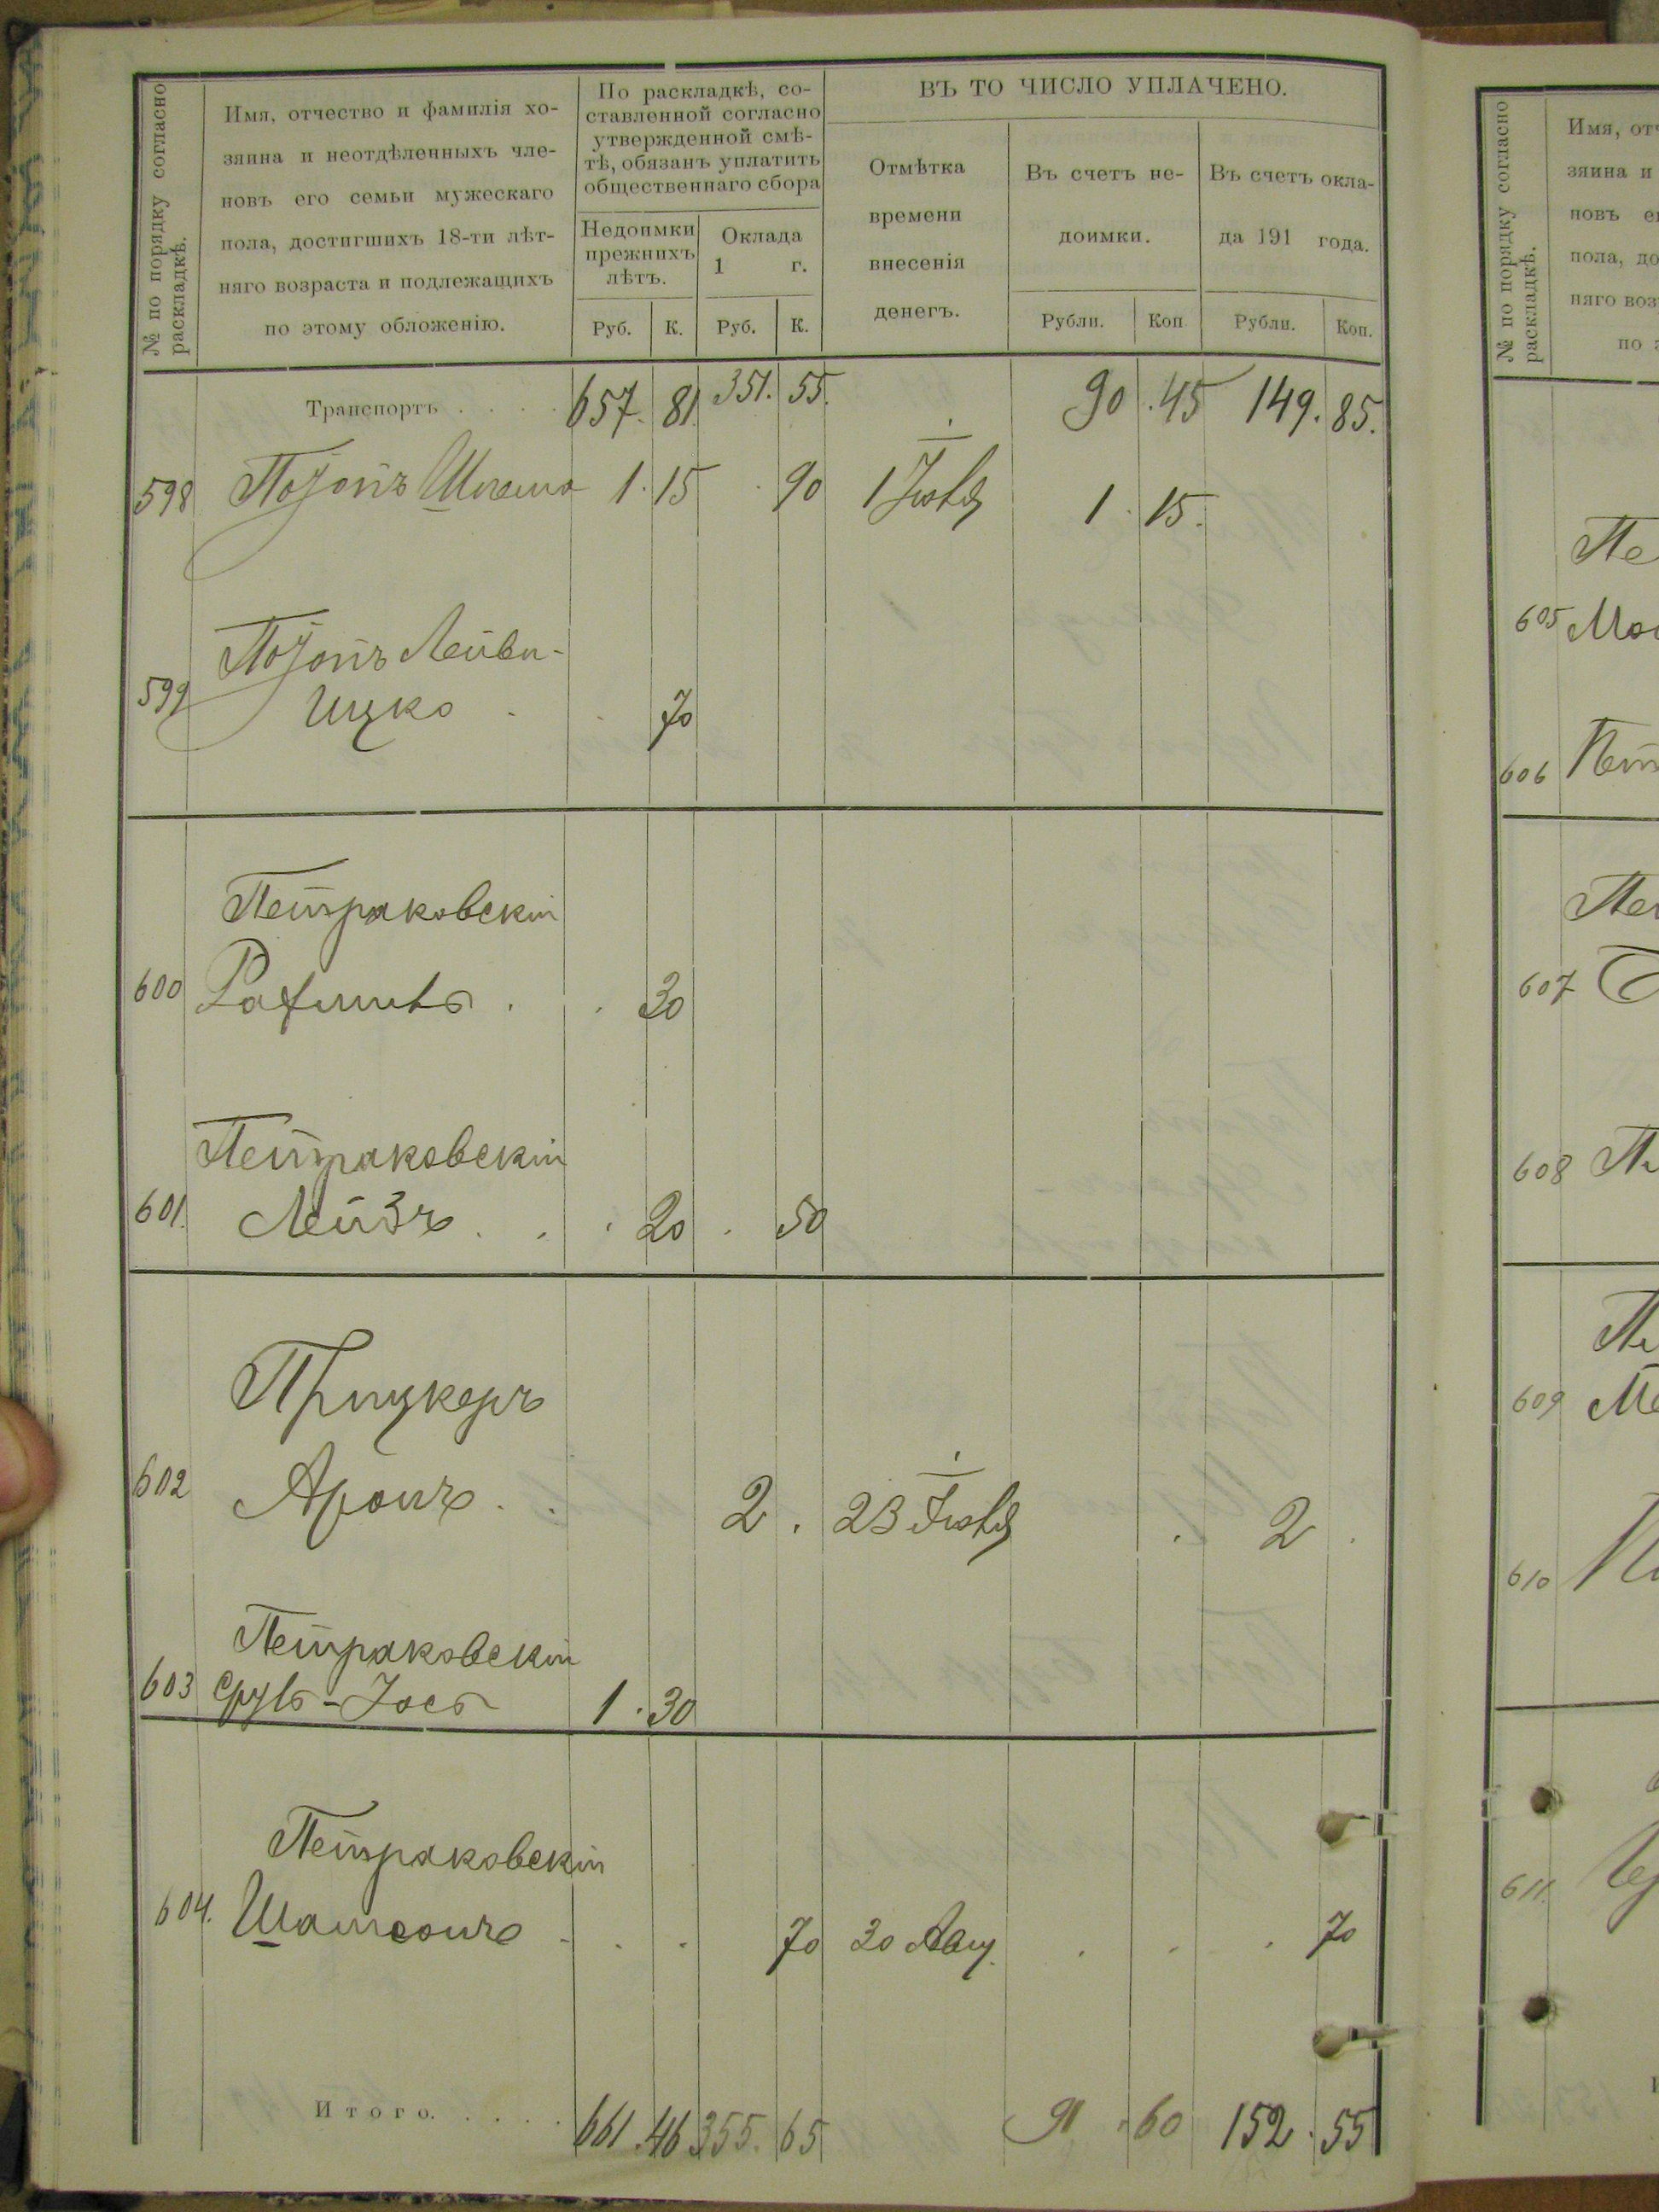 № по порядку согласно
раскладкѣ.
Имя, отчество и фамилія хо-
зяина и неотдѣленныхъ чле-
новъ его семьи мужескаго
пола, достигшихъ 18-ти лѣт-
няго возраста и подлежащихъ
по этому обложенію.
По раскладкѣ, со-
ставленной согласно
утвержденной смѣ-
тѣ, обязанъ уплатить
общественнаго сбора
Недоимки
прежнихъ
лѣтъ.
Оклада
1 г.
Руб. К. Руб. К.
ВЪ ТО ЧИСЛО УПЛАЧЕНО.
Отмѣтка
времени
внесенія
денегъ.
Въ счетъ не-
доимки.
Рубли. Коп
Въ счетъ окла-
да 191 года.
Рубли. Коп.
Транспортъ . . . . 657. 81. 351. 55. 90 . 45 149. 85.
598 Шлема 1. 15 . 90 1 1. 15.
599 Лейви-
Ицко . . 70
Петраковскій
600 . . 30
Петраковскій
601. Лейзъ . . . 20 . 50
Прицкеръ
602 Аронъ . . 2 . 23 . 2 .
Петраковскій
603 Сруль-Іось 1. 30
Петраковскій
604. Шамсонъ . . . 70 30 Авг. . . . 70
Итого. . . . . 661. 46 355. 65 91 . 60 152. 55
№ по порядку согласно
раскладкѣ.
Имя, отч
зяина и
новъ
пола, до
няго воз
по
Пе
605
606
607
608
609
610
611.